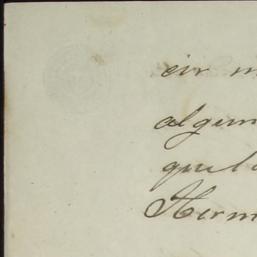 cir m
algun
que l
Herm